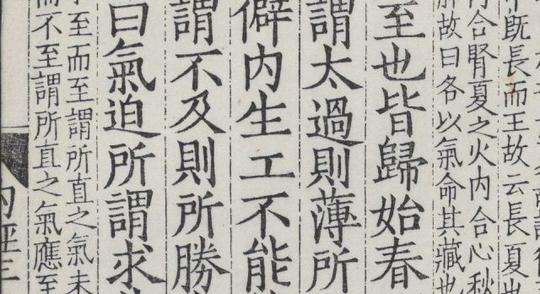 既長而王故云長夏也
内合腎夏之火内合心秋
故曰各以氣命其藏也
至也皆歸始春
謂太過則薄所
僻内生工不能
謂不及則所勝
曰氣迫所謂求
至而至謂所直之氣未
而不至謂所直之氣應至
内經三